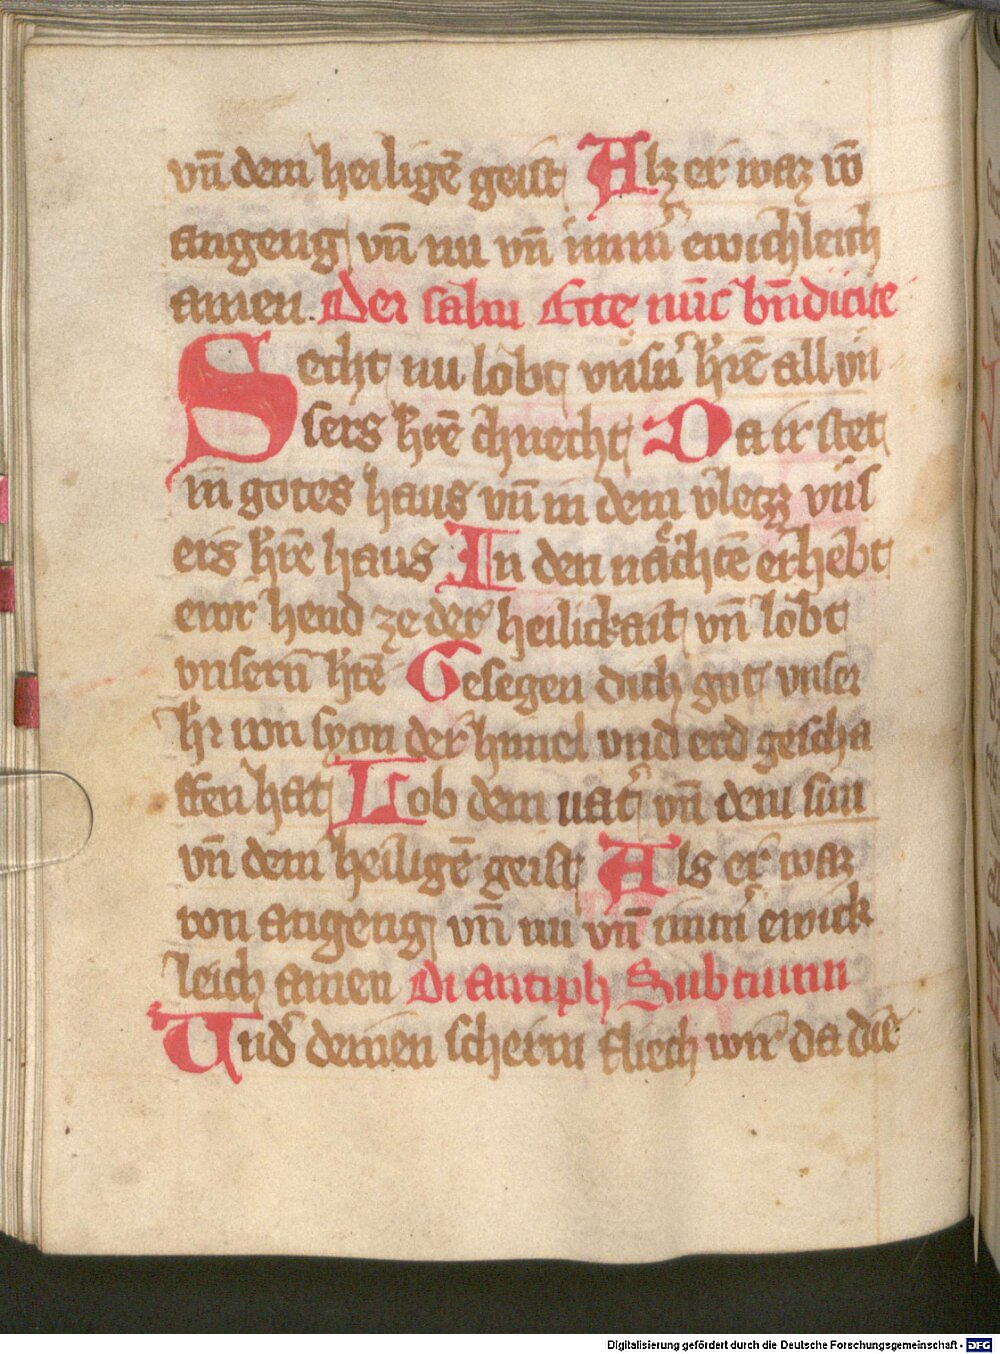 vn̄ dem heiligē geist Alz er waz vō
angeng vn̄ nu vn̄ im̄m̄ ewichleich
amen. Der salm Ecce nūc bn̄dicite
Secht nu lobt vnsn̄ hr̄rē all vn
sers hr̄rē chnecht Da ir stet
in gotes haus vn̄ in dem vletz vns
ers hr̄rē haus In den nächtē erhebt
ewr hend ze der heilickait vn̄ lobt
vnsern̄ hr̄rē Gesegen dich got vnser
hr̄r von syon der himel vnd erd gescha
ffen hat Lob dem vat̄ vn̄ dem sun
vn̄ dem heiligē geist Als er waz
von angeng vn̄ nu vn̄ im̄m̄ ewick
leich amen Di antiph Sub tuum
Vnd̄ deinen scherm fliech wir da die
Digitalisierung gefördert durch die Deutsche Forschungsgemeinschaft - DFG